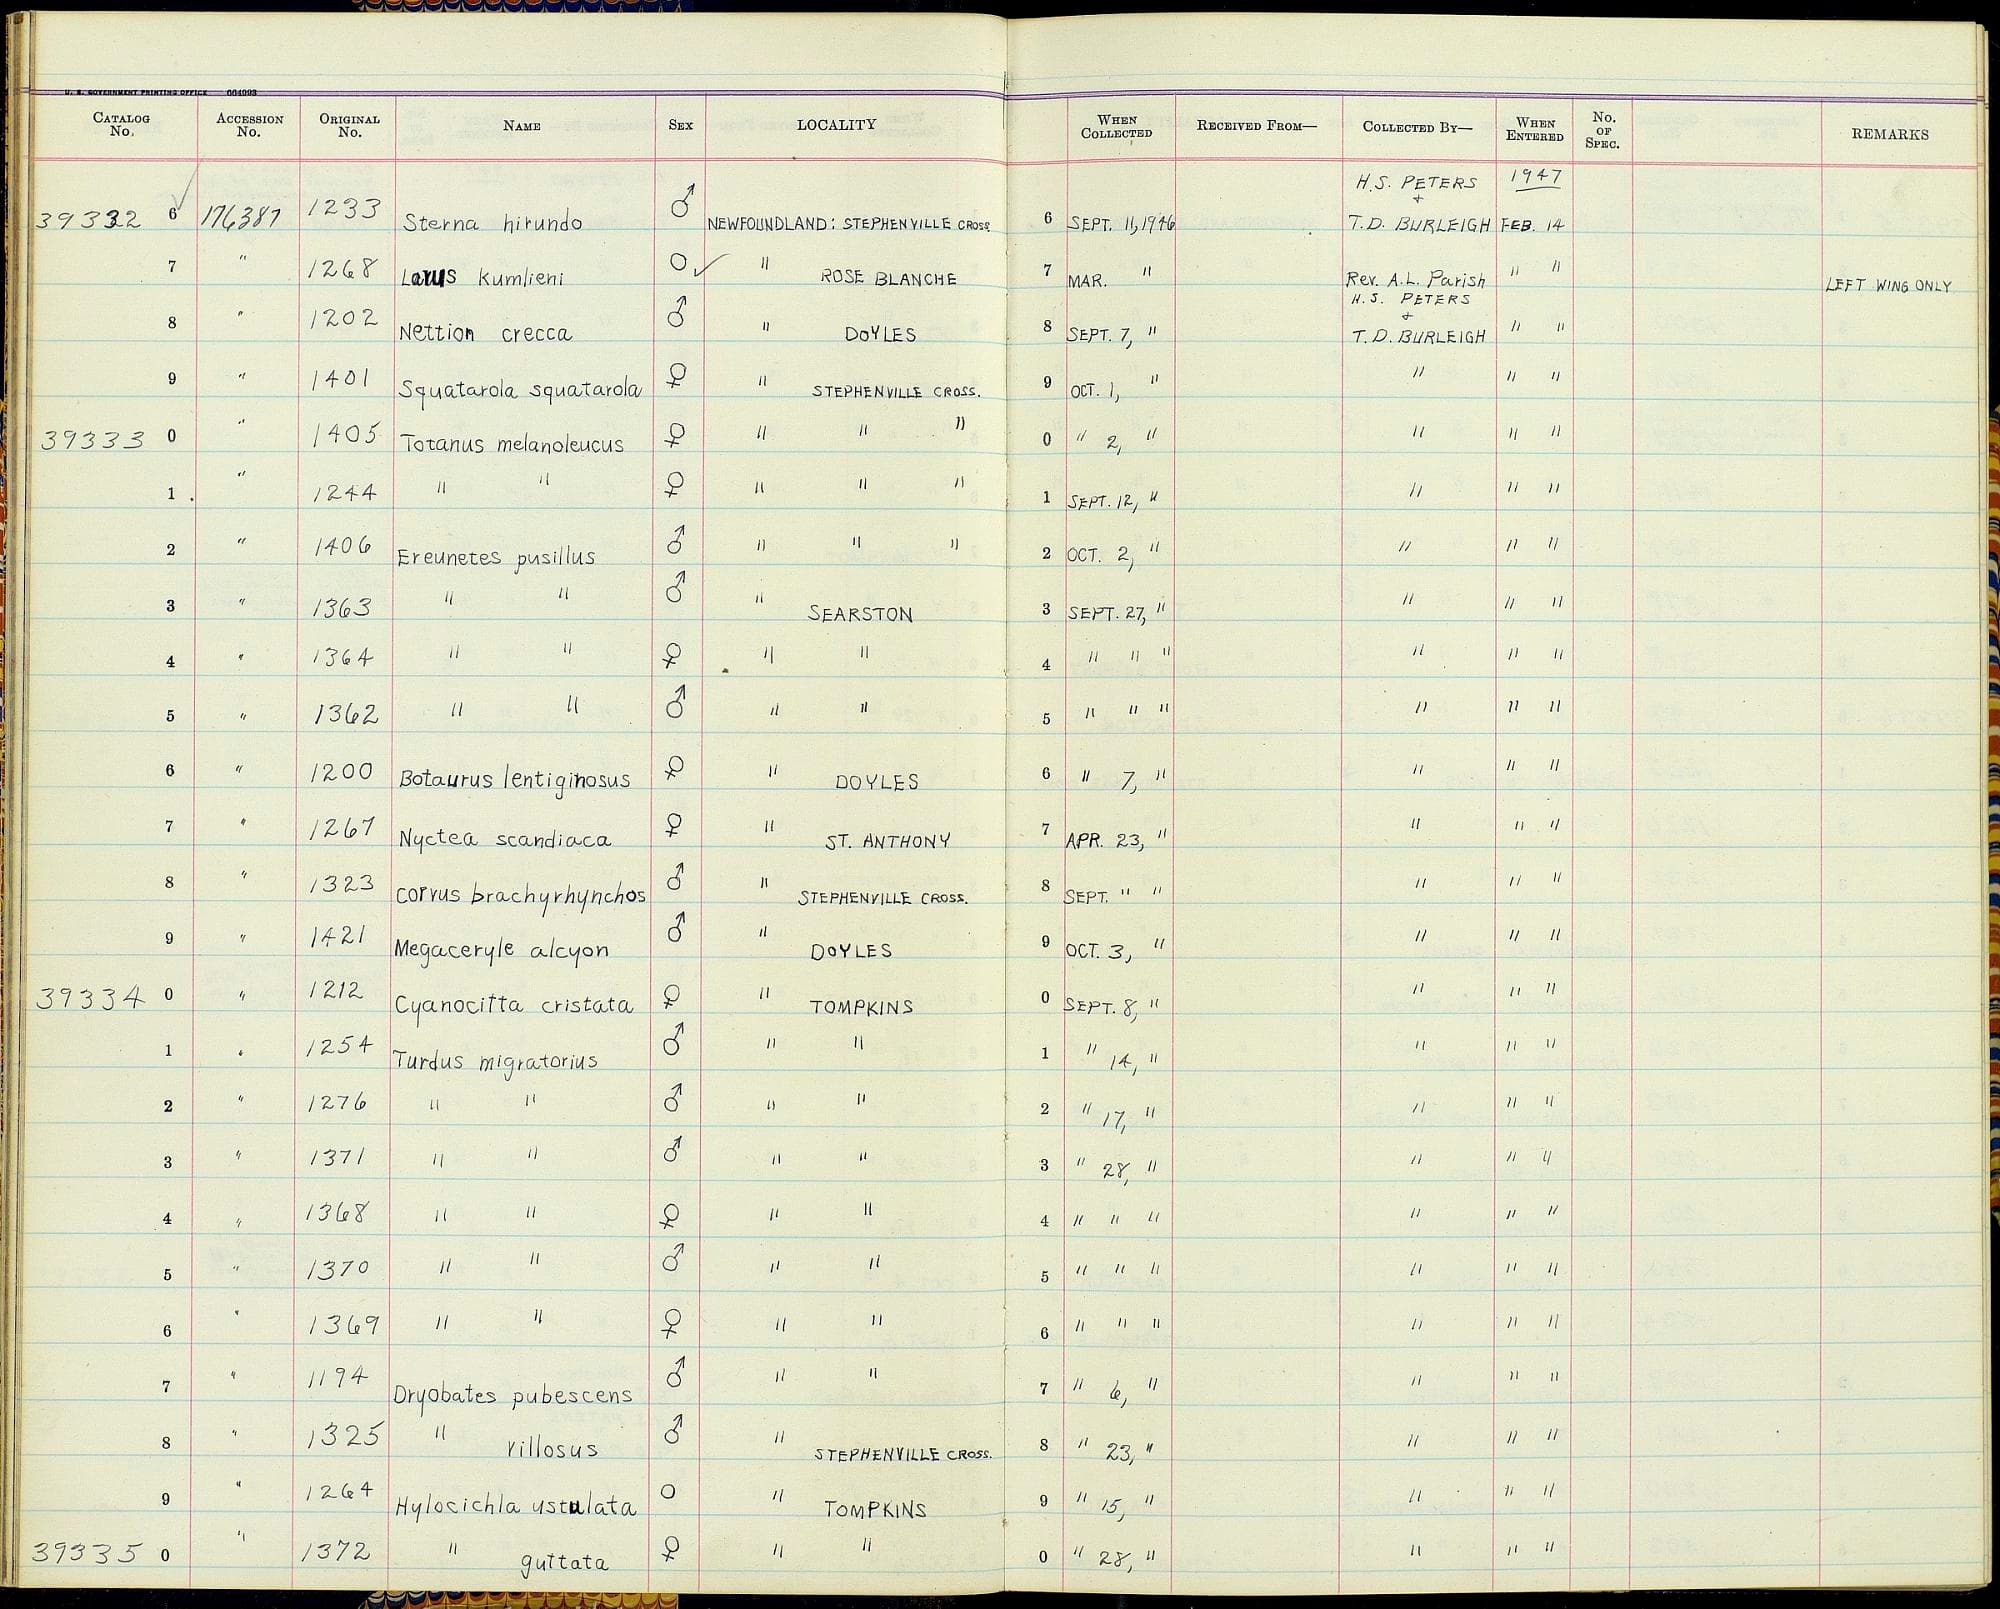 U. S. GOVERNMENT PRINTING OFFICE 664093
CATALOG No. ACCESSION No. ORIGINAL No. NAME SEX LOCALITY WHEN COLLECTED RECEIVED FROM— COLLECTED BY— WHEN ENTERED No. OF SPEC. REMARKS
H.S. PETERS 1947
+
39332 6 176387 1233 Sterna hirundo ♂ NEWFOUNDLAND: STEPHENVILLE CROSS. 6 SEPT. 11, 1946 T.D. BURLEIGH FEB. 14
7 " 1268 Larus kumlieni O ✓ " ROSE BLANCHE 7 MAR. " Rev. A.L. Parish " " LEFT WING ONLY
H.S. PETERS
+
8 " 1202 Nettion crecca ♂ " DOYLES 8 SEPT. 7, " T.D. BURLEIGH " "
9 " 1401 Squatarola squatarola ♀ " STEPHENVILLE CROSS. 9 OCT. 1, " " " "
39333 0 " 1405 Totanus melanoleucus ♀ " " " 0 " 2, " " " "
1 " 1244 " " ♀ " " " 1 SEPT. 12, " " " "
2 " 1406 Ereunetes pusillus ♂ " " " 2 OCT. 2, " " " "
3 " 1363 " " ♂ " SEARSTON 3 SEPT. 27, " " " "
4 " 1364 " " ♀ " " 4 " " " " " "
5 " 1362 " " ♂ " " 5 " " " " " "
6 " 1200 Botaurus lentiginosus ♀ " DOYLES 6 " 7, " " " "
7 " 1267 Nyctea scandiaca ♀ " ST. ANTHONY 7 APR. 23, " " " "
8 " 1323 Corvus brachyrhynchos ♂ " STEPHENVILLE CROSS. 8 SEPT. " " " " "
9 " 1421 Megaceryle alcyon ♂ " DOYLES 9 OCT. 3, " " " "
39334 0 " 1212 Cyanocitta cristata ♀ " TOMPKINS 0 SEPT. 8, " " " "
1 " 1254 Turdus migratorius ♂ " " 1 " 14, " " " "
2 " 1276 " " ♂ " " 2 " 17, " " " "
3 " 1371 " " ♂ " " 3 " 28, " " " "
4 " 1368 " " ♀ " " 4 " " " " " "
5 " 1370 " " ♂ " " 5 " " " " " "
6 " 1369 " " ♀ " " 6 " " " " " "
7 " 1194 Dryobates pubescens ♂ " " 7 " 6, " " " "
8 " 1325 " villosus ♂ " STEPHENVILLE CROSS. 8 " 23, " " " "
9 " 1264 Hylocichla ustulata O " TOMPKINS 9 " 15, " " " "
39335 0 " 1372 " guttata ♀ " " 0 " 28, " " " "